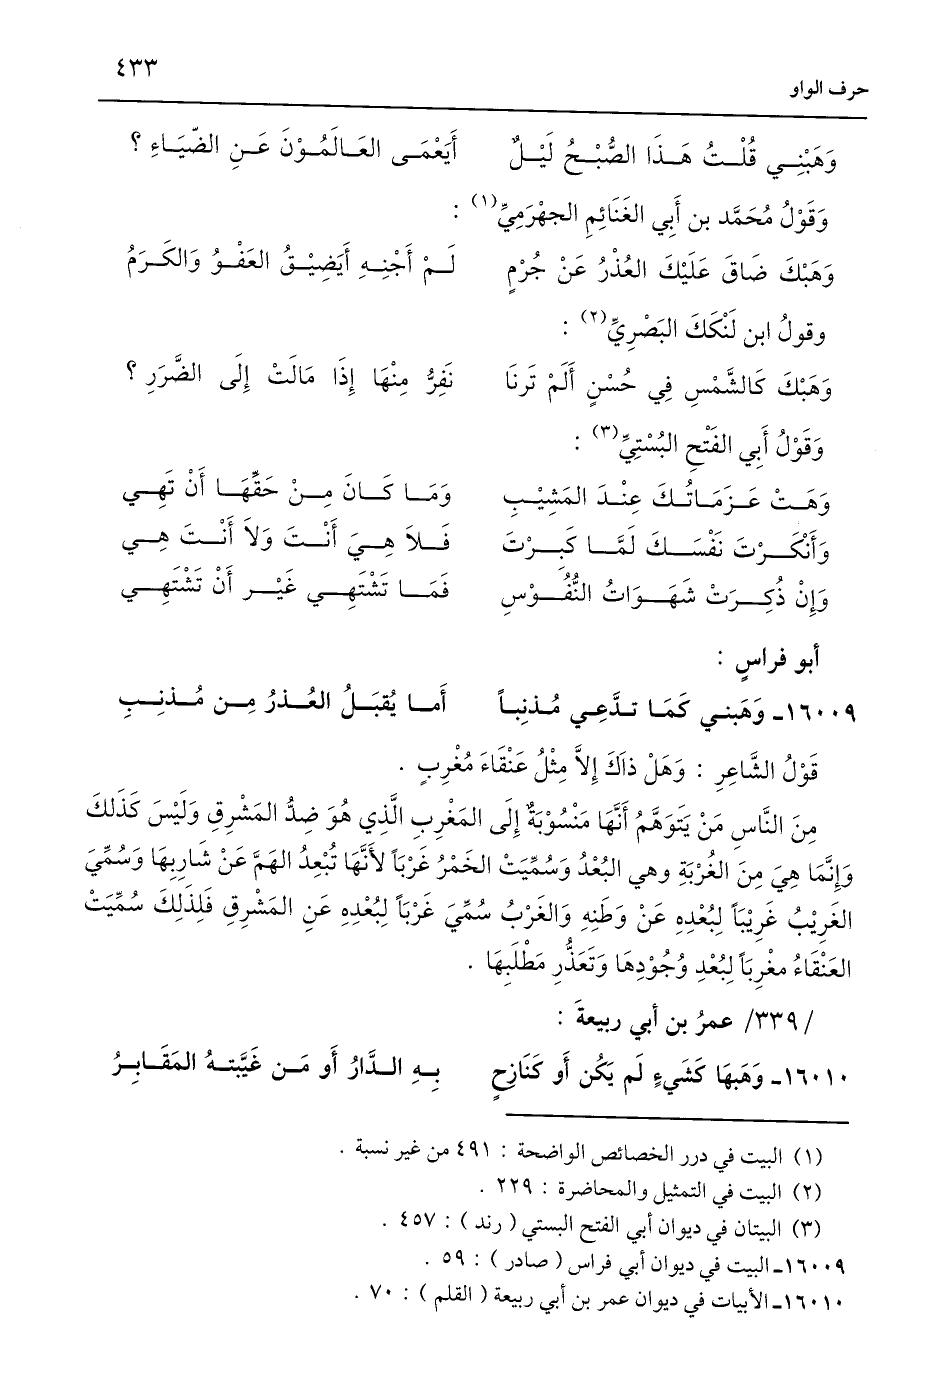 ٤٣٣
حرف الواو
وَهَبْنِي قُلْتُ هَذَا الصُّبْحُ لَيْلٌ أَيَعْمَى العَالَمُوْنَ عَنِ الضِّيَاءِ ؟
وَقَوْلُ مُحَمَّد بن أَبي الغَنَائِمِ الجهْرَمِيِّ(١) :
وَهَبْكَ ضَاقَ عَلَيْكَ العُذْرُ عَنْ جُرْمٍ لَمْ أَجْنِهِ أَيَضِيْقُ العَفْوُ وَالكَرَمُ
وقولُ ابن لَنْكَكَ البَصْرِيِّ(٢) :
وَهَبْكَ كَالشَّمْسِ فِي حُسْنٍ أَلَمْ تَرنَا نَفِرُّ مِنْهَا إِذَا مَالَتْ إِلَى الضَّرَرِ ؟
وَقَوْلُ أَبِي الفَتْحِ البُسْتِيِّ(٣) :
وَهَتْ عَزَمَاتُكَ عِنْدَ المَشِيْبِ وَمَا كَانَ مِنْ حَقِّهَا أَنْ تَهِي
وَأَنْكَرْتَ نَفْسَكَ لَمَّا كَبِرْتَ فَلاَ هِيَ أَنْتَ وَلاَ أَنْتَ هِي
وَإِنْ ذُكِرَتْ شَهَوَاتُ النُّفُوْسِ فَمَا تَشْتَهِي غَيْر أَنْ تَشْتَهِي
أبو فراسٍ :
١٦٠٠٩ـ وَهَبني كَمَا تدَّعِي مُذنِباً أَما يُقبَلُ العُذرُ مِن مُذنِبِ
قَوْلُ الشَّاعِرِ : وَهَلْ ذاَكَ إِلاَّ مِثْلُ عَنْقَاءَ مُغْرِبٍ .
مِنَ النَّاسِ مَنْ يَتَوَهَّمُ أَنَّهَا مَنْسُوْبَةٌ إِلَى المَغْرِبِ الَّذِي هُوَ ضِدُّ المَشْرِقِ وَلَيْسَ كَذَلكَ
وَإِنَّمَا هِيَ مِنَ الغُرْبَةِ وهي البُعْدُ وَسُمِّيَتْ الخَمْرُ غَرْباً لأَنَّهَا تُبْعِدُ الهَمَّ عَنْ شَارِبِهَا وَسُمِّيَ
الغَرِيْبُ غَرِيْبَاً لِبُعْدِهِ عَنْ وَطَنِهِ وَالغَرْبُ سُمِّيَ غَرْباً لِبُعْدِهِ عَنِ المَشْرِقِ فَلِذَلِكَ سُمِّيَتْ
العَنْقَاءُ مغْرِبَاً لِبُعْدِ وُجُوْدِهَا وَتَعَذُّرِ مَطْلَبِهَا .
/ ٣٣٩/ عمرُ بن أبي ربيعةَ :
١٦٠١٠ـ وَهَبهَا كَشَيءٍ لَم يَكُن أَو كَنَازحٍ بِهِ الدَّارُ أَو مَن غَيَّبتهُ المَقَابِرُ
(١) البيت في درر الخصائص الواضحة : ٤٩١ من غير نسبة .
(٢) البيت في التمثيل والمحاضرة : ٢٢٩ .
(٣) البيتان في ديوان أبي الفتح البستي ( رند ) : ٤٥٧ .
١٦٠٠٩ـ البيت في ديوان أبي فراس ( صادر ) : ٥٩ .
١٦٠١٠ـ الأبيات في ديوان عمر بن أبي ربيعة ( القلم ) : ٧٠ .